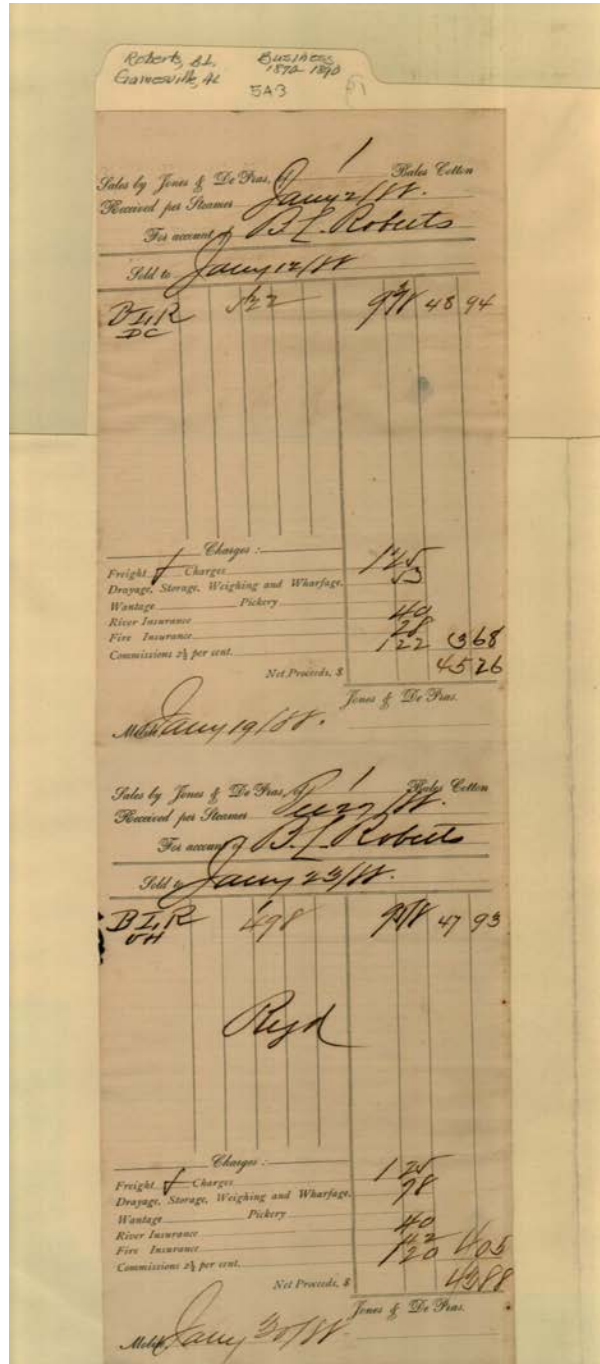 Roberts, B.L. Business
Gainesville, AL 1870-1890
5A3
Sales by Jones & De Vras, of 1 Bales Cotton
Received per Steamer Jany 2/88.
For account of B L Roberts
Sold to Jany 12/88
BLR 1 522 9 3/8 48 94
DC
Charges :
Freight & Charges 1 25
Drayage, Storage, Weighing and Wharfage. 53
Wantage Pickery
River Insurance 40
Fire Insurance 28
Commissions 2½ per cent. 1 22 3 68
Net Proceeds, $ 45 26
Jones & De Vras.
Mobile Jany 19/88.
Sales by Jones & De Vras, of 1 Bales Cotton
Received per Steamer
For account of B L Roberts
Sold to Jany 23/88.
BLR 1 498 9 5/8 47 93
VH
Charges :
Freight & Charges 1 25
Drayage, Storage, Weighing and Wharfage. 78
Wantage Pickery
River Insurance 40
Fire Insurance 42
Commissions 2½ per cent. 1 20 4 05
Net Proceeds, $ 43 88
Jones & De Vras.
Mobile Jany 30/88.